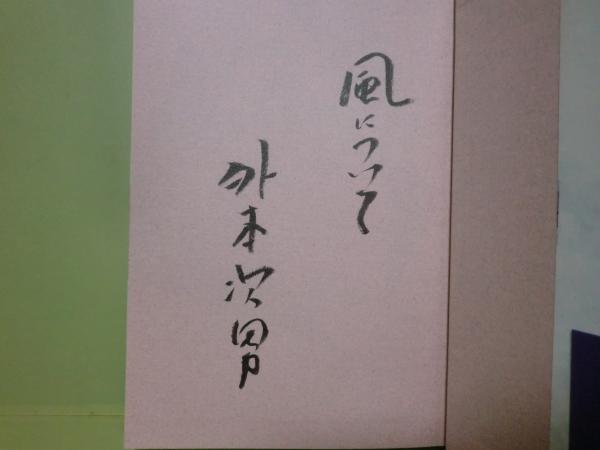 風について
外本次男